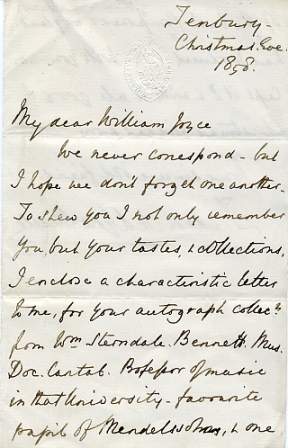 Tenbury -
Christmas Eve.
1858.
My dear William Joyce
We never correspond - but
I hope we don't forget one another.
To shew you I not only remember
you, but your tastes, & collections,
I enclose a characteristic letter
to me, for your autograph collecn
from Wm Sterndale. Bennett. Mus.
Doc. Cantab. Professor of music
in that University - favourite
pupil of Mendelssohn, & one